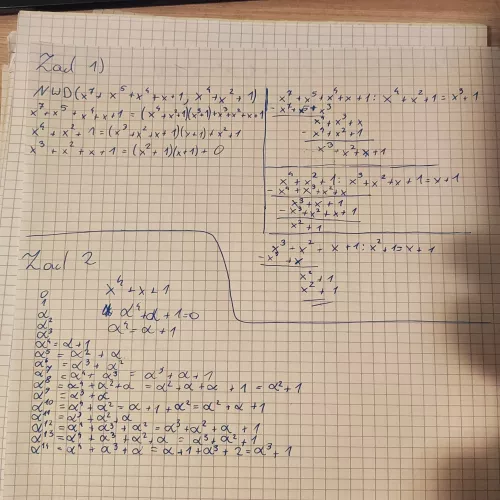 Zad 1)
NWD(x⁷ + x⁵ + x⁴ + x + 1, x⁴ + x² + 1)
x⁷ + x⁵ + x⁴ + x + 1 = (x⁴ + x² + 1)(x³ + 1) + x³ + x² + x + 1
x⁴ + x² + 1 = (x³ + x² + x + 1)(x + 1) + x² + 1
x³ + x² + x + 1 = (x² + 1)(x + 1) + 0
x⁷ + x⁵ + x⁴ + x + 1 : x⁴ + x² + 1 = x³ + 1
x⁴ + x³ + x
- x⁴ + x² + 1
x³ + x² + x + 1
x⁴ + x² + 1 : x³ + x² + x + 1 = x + 1
- x⁴ + x³ + x² + x
x³ + x + 1
- x³ + x² + x + 1
x² + 1
x³ - x² - x + 1 : x² + 1 = x + 1
- x³ + x
x² + 1
x² + 1
Zad 2
x⁴ + x + 1
α⁴ + α + 1 = 0
α⁴ = α + 1
0
1
α
α²
α³
α⁴ = α + 1
α⁵ = α² + α
α⁶ = α³ + α²
α⁷ = α⁴ + α³ = α³ + α + 1
α⁸ = α⁴ + α² + α = α² + α + α + 1 = α² + 1
α⁹ = α³ + α
α¹⁰ = α⁴ + α² = α + 1 + α² = α² + α + 1
α¹¹ = α³ + α² + α
α¹² = α⁴ + α³ + α² = α³ + α² + α + 1
α¹³ = α⁴ + α³ + α² + α = α³ + α² + 1
α¹⁴ = α⁴ + α³ + α = α + 1 + α³ + 2 = α³ + 1